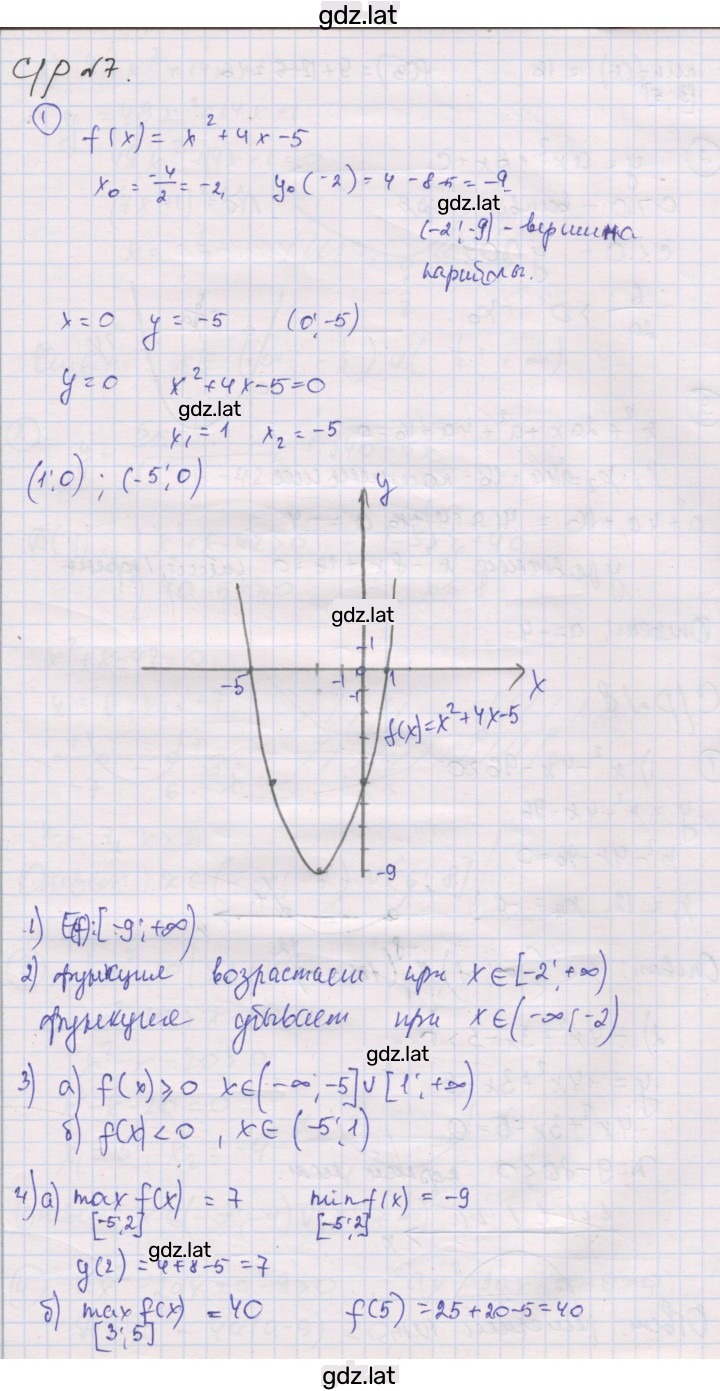 gdz.lat
С/р №7.
1
f(x) = x² + 4x - 5
x₀ = -4/2 = -2, y₀(-2) = 4 - 8 - 5 = -9
gdz.lat
(-2; -9) - вершина
параболы.
x = 0 y = -5 (0; -5)
y = 0 x² + 4x - 5 = 0
gdz.lat
x₁ = 1 x₂ = -5
(1; 0) ; (-5; 0)
y
gdz.lat
1
-5 -1 0 1 x
-1
f(x) = x² + 4x - 5
-9
1) E(f): [-9; +∞)
2) функция возрастает при x ∈ [-2; +∞)
функция убывает при x ∈ (-∞; -2)
gdz.lat
3) а) f(x) ⩾ 0 x ∈ (-∞; -5] ∪ [1; +∞)
б) f(x) < 0 , x ∈ (-5; 1)
4) а) max f(x) = 7 min f(x) = -9
[-5; 2] [-5; 2]
gdz.lat
y(2) = 4 + 8 - 5 = 7
б) max f(x) = 40 f(5) = 25 + 20 - 5 = 40
[3; 5]
gdz.lat